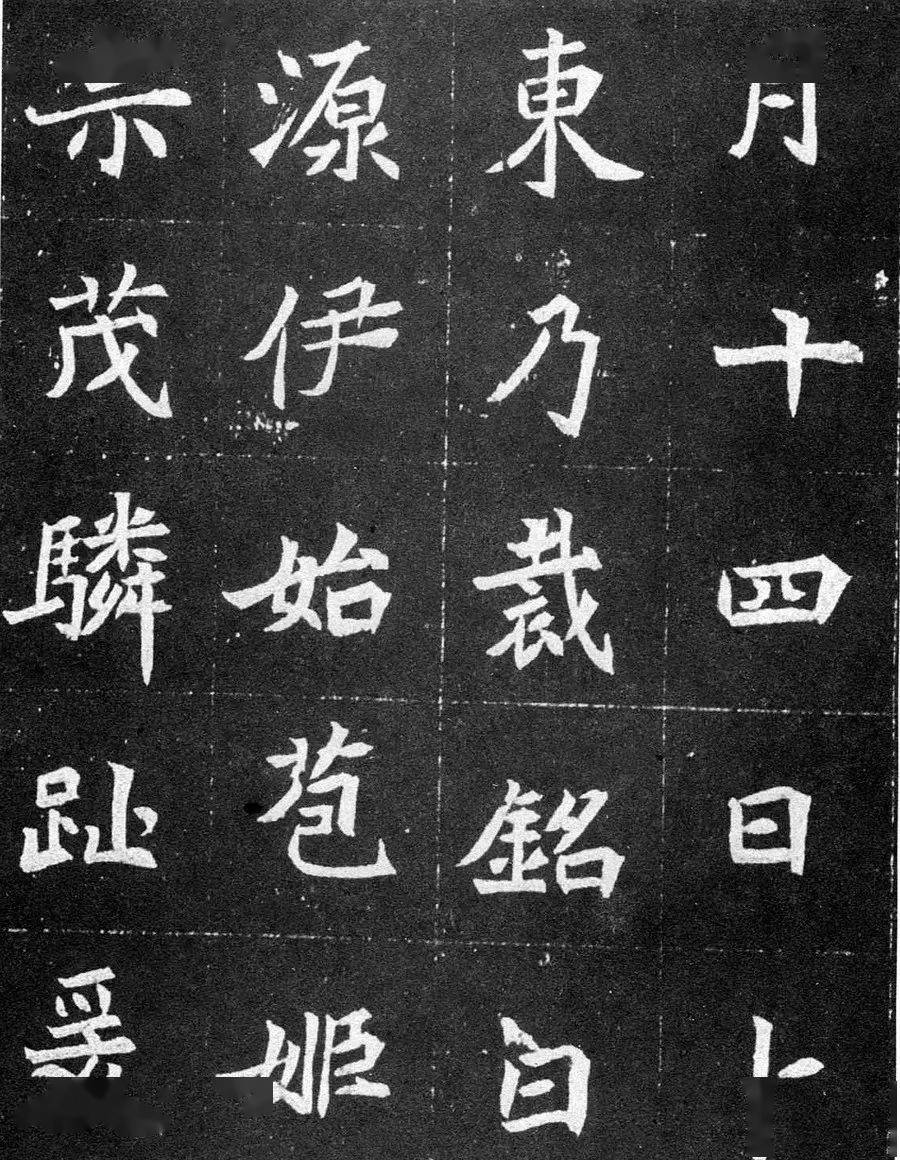 月十四日
東乃裁銘曰
源伊始苞姬
茂驎趾